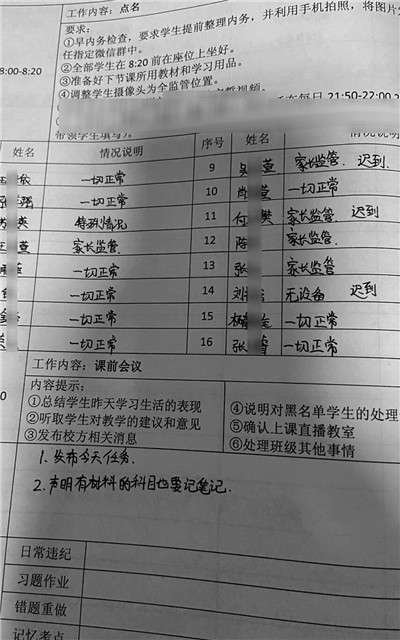 工作内容：点名
要求：
①早内务检查，要求学生提前整理内务，并利用手机拍照，将图片
任指定微信群中。
②全部学生在 8:20 前在座位上坐好。
8:00-8:20
③准备好下节课所用教材和学习用品。
④调整学生摄像头为全监管位置。
在每日 21:50-22:00
带领学生填写）。
姓名 情况说明 序号 姓名 情况说明
依 一切正常 9 萱 家长监管. 迟到.
一切正常 10 萱 一切正常
英 特殊情况 11 付 樊 家长监管. 迟到
王 萱 家长监管 12 陈 家长监管.
一切正常 13 张 家长监管
一切正常 14 刘 无设备 迟到
一切正常 15 一切正常
一切正常 16 张 一切正常
工作内容：课前会议
内容提示：
①总结学生昨天学习生活的表现
②听取学生对教学的建议和意见
③发布校方相关消息
④说明对黑名单学生的处理
⑤确认上课直播教室
⑥处理班级其他事情
1. 发布今天任务.
2. 声明有材料的科目也要记笔记.
日常违纪
习题作业
错题重做
记忆考点